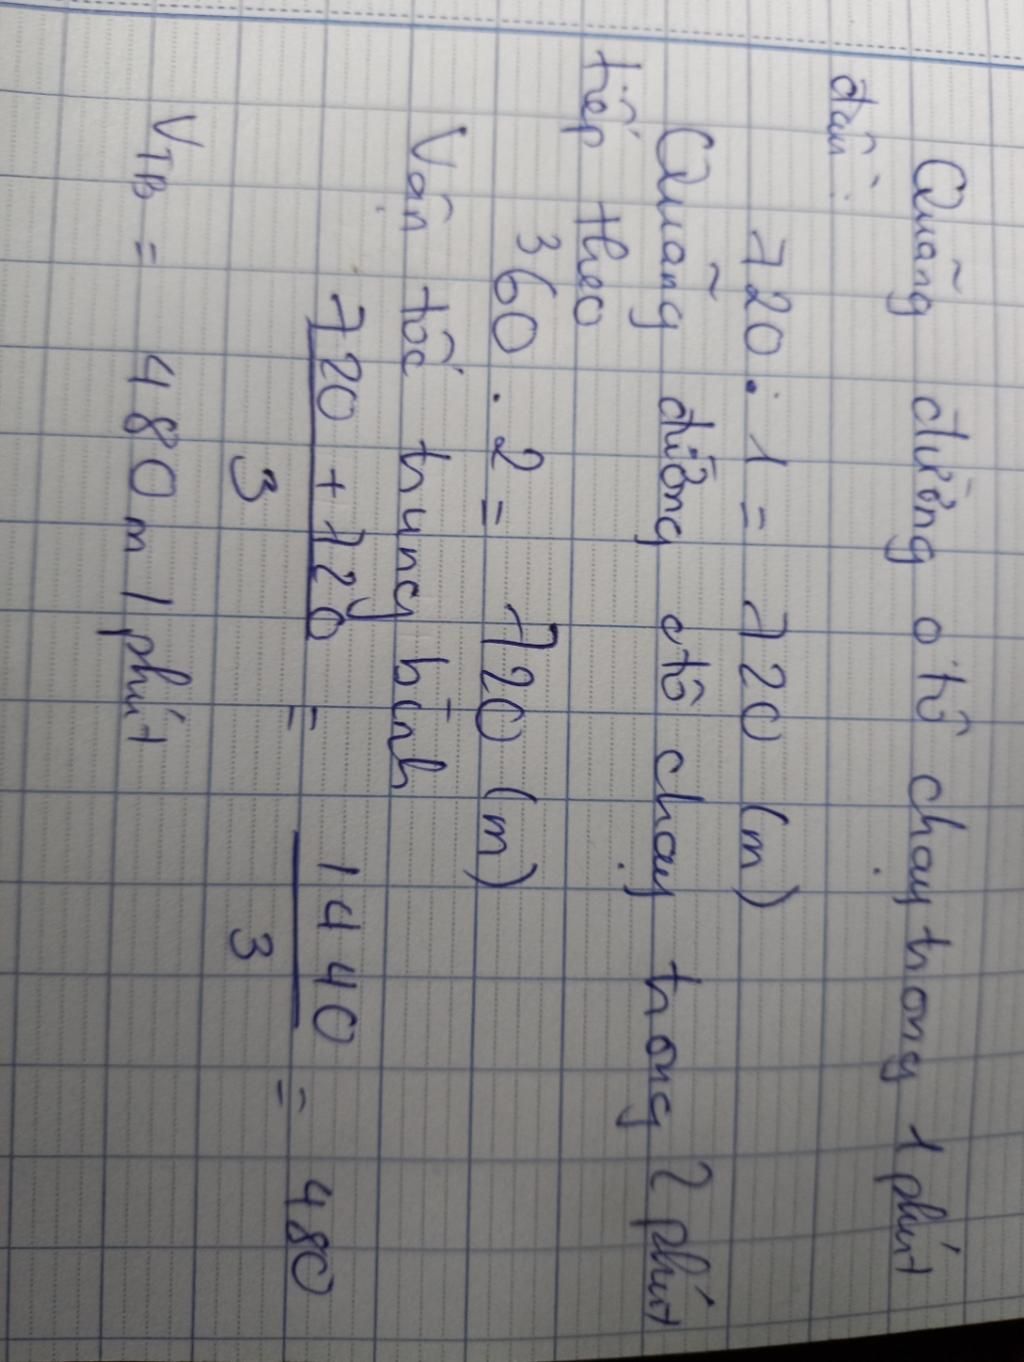 Quãng đường ôtô chạy trong 1 phút
đầu:
720 : 1 = 720 (m)
Quãng đường ôtô chạy trong 2 phút
tiếp theo
360 . 2 = 720 (m)
Vận tốc trung bình
720 + 720 / 3 = 1440 / 3 = 480
VTB = 480 m / phút